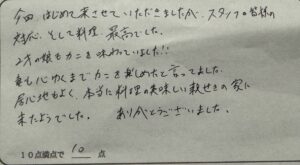 今回はじめて来させていただきましたが、スタッフの皆様の
対応、そして料理、最高でした。
2才の娘もカニを味わっていました!!
カニを楽しめたと言ってました。
居心地もよく、本当に料理の美味しい親せきの家に
来たようでした。 ありがとうございました。
10点満点で 10 点